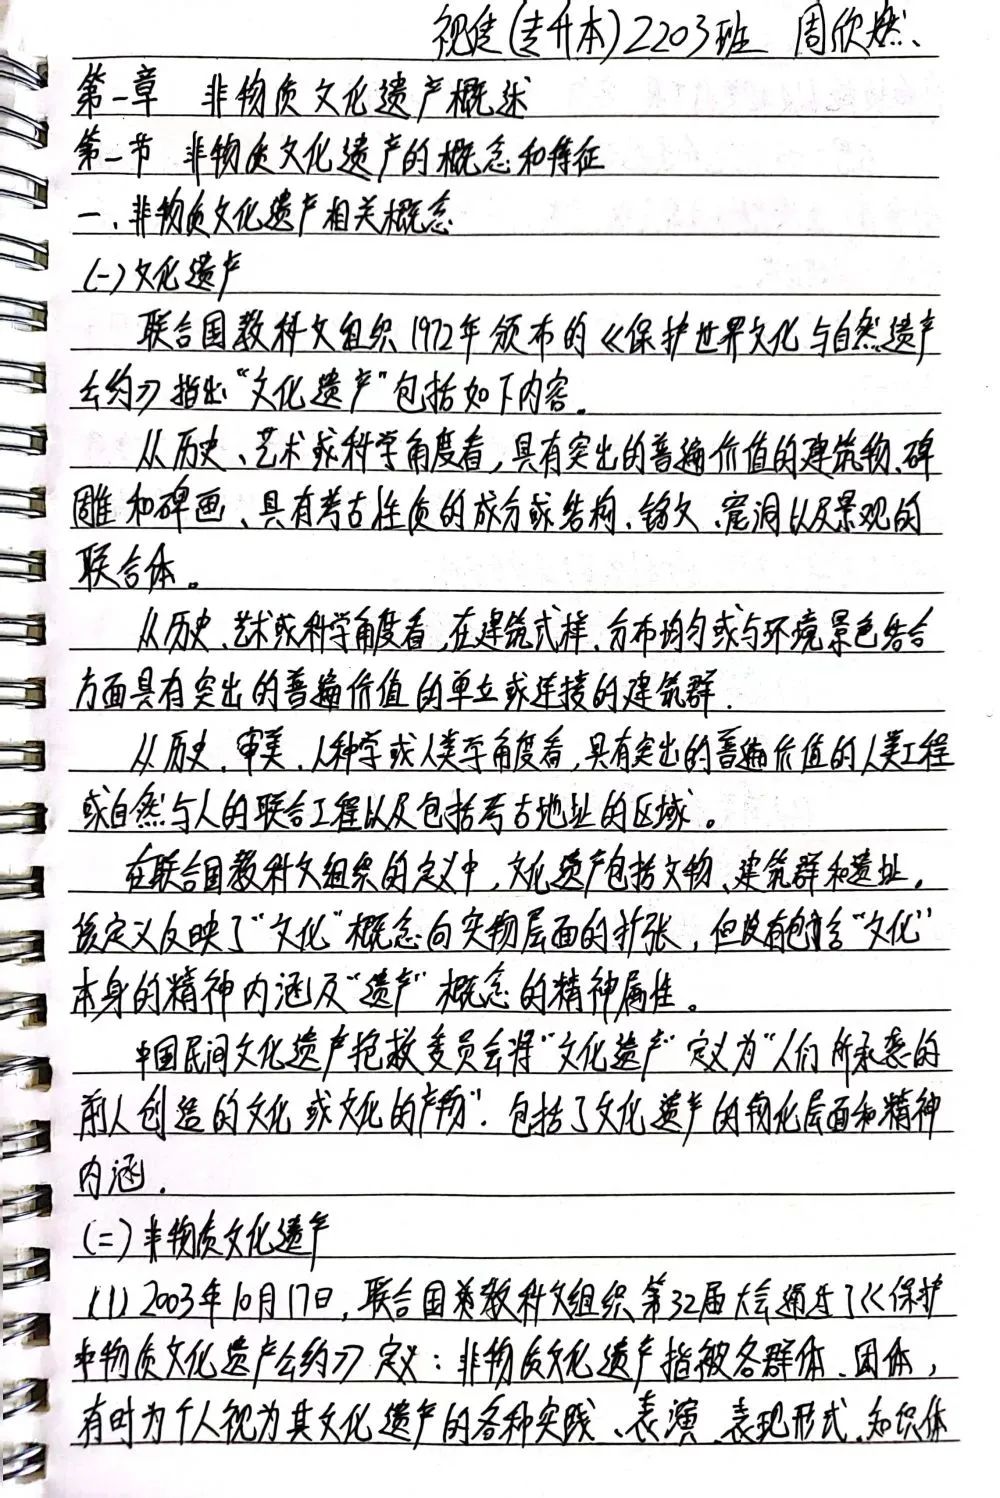 视传(专升本)2203班 周欣燃
第一章 非物质文化遗产概述
第一节 非物质文化遗产的概念和特征
一、非物质文化遗产相关概念
(一)文化遗产
联合国教科文组织1972年颁布的《保护世界文化与自然遗产
公约》指出“文化遗产”包括如下内容。
从历史、艺术或科学角度看,具有突出的普遍价值的建筑物、碑
雕和碑画、具有考古性质的成分或结构、铭文、窟洞以及景观的
联合体。
从历史、艺术或科学角度看,在建筑式样、分布均匀或与环境景色结合
方面具有突出的普遍价值的单立或连接的建筑群.
从历史、审美、人种学或人类学角度看,具有突出的普遍价值的人类工程
或自然与人的联合工程以及包括考古地址的区域。
在联合国教科文组织的定义中,文化遗产包括文物、建筑群和遗址,
该定义反映了“文化”概念向实物层面的扩张,但没有包含“文化”
本身的精神内涵及“遗产”概念的精神属性。
中国民间文化遗产抢救委员会将“文化遗产”定义为“人们所承袭的
前人创造的文化或文化的产物”.包括了文化遗产的物化层面和精神
内涵.
(二)非物质文化遗产
(1)2003年10月17日,联合国教科文组织第32届大会通过了《保护
非物质文化遗产公约》定义:非物质文化遗产指被各群体、团体,
有时为个人视为其文化遗产的各种实践、表演、表现形式、知识体